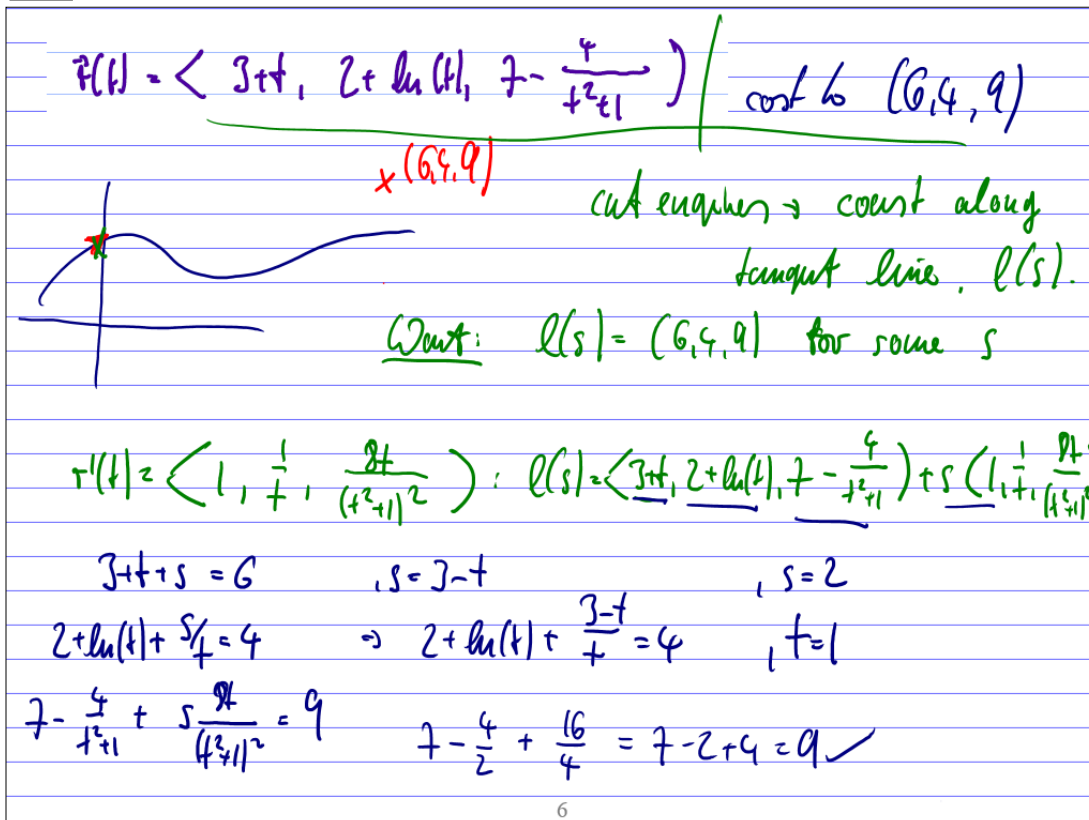 r⃗(t) = < 3+t, 2+ ln(t), 7 - 4/(t²+1) ) | coast to (6,4,9)
x (6,4,9)
cut engines → coast along
tangent line, l(s).
Want: l(s) = (6,4,9) for some s
r'(t) = < 1, 1/t, 8t/(t²+1)² ) : l(s) = <3+t, 2+ln(t), 7 - 4/(t²+1)) + s (1, 1/t, 8t/(t²+1)²
3+t+s = 6 , s = 3-t , s = 2
2+ln(t)+ s/t = 4 ⇒ 2+ln(t)+ (3-t)/t = 4 , t=1
7 - 4/(t²+1) + s 8t/(t²+1)² = 9 7 - 4/2 + 16/4 = 7-2+4 = 9 ✓
6